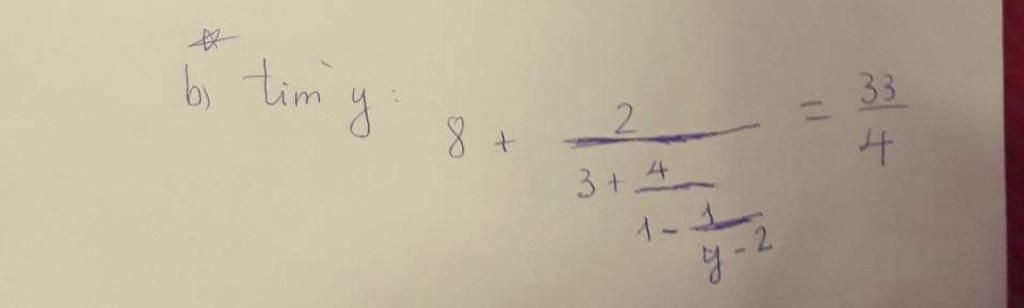 b) tìm y: 8 + \frac{2}{3 + \frac{4}{1 - \frac{1}{y - 2}}} = \frac{33}{4}